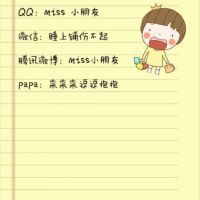 QQ：miss 小朋友
微信：睡上铺伤不起
腾讯微博：miss小朋友
papa：来来来逗逗抱抱